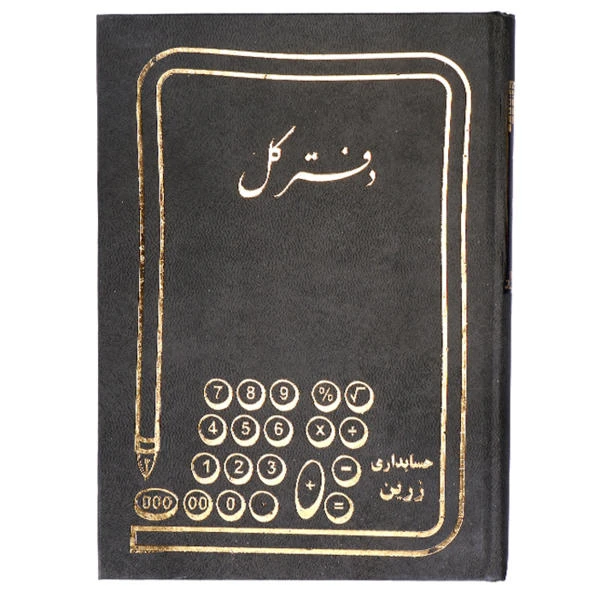 دفتر کل
7 8 9 % √
4 5 6 x ÷
1 2 3 + −
000 00 0 . =
حسابداری
زرین